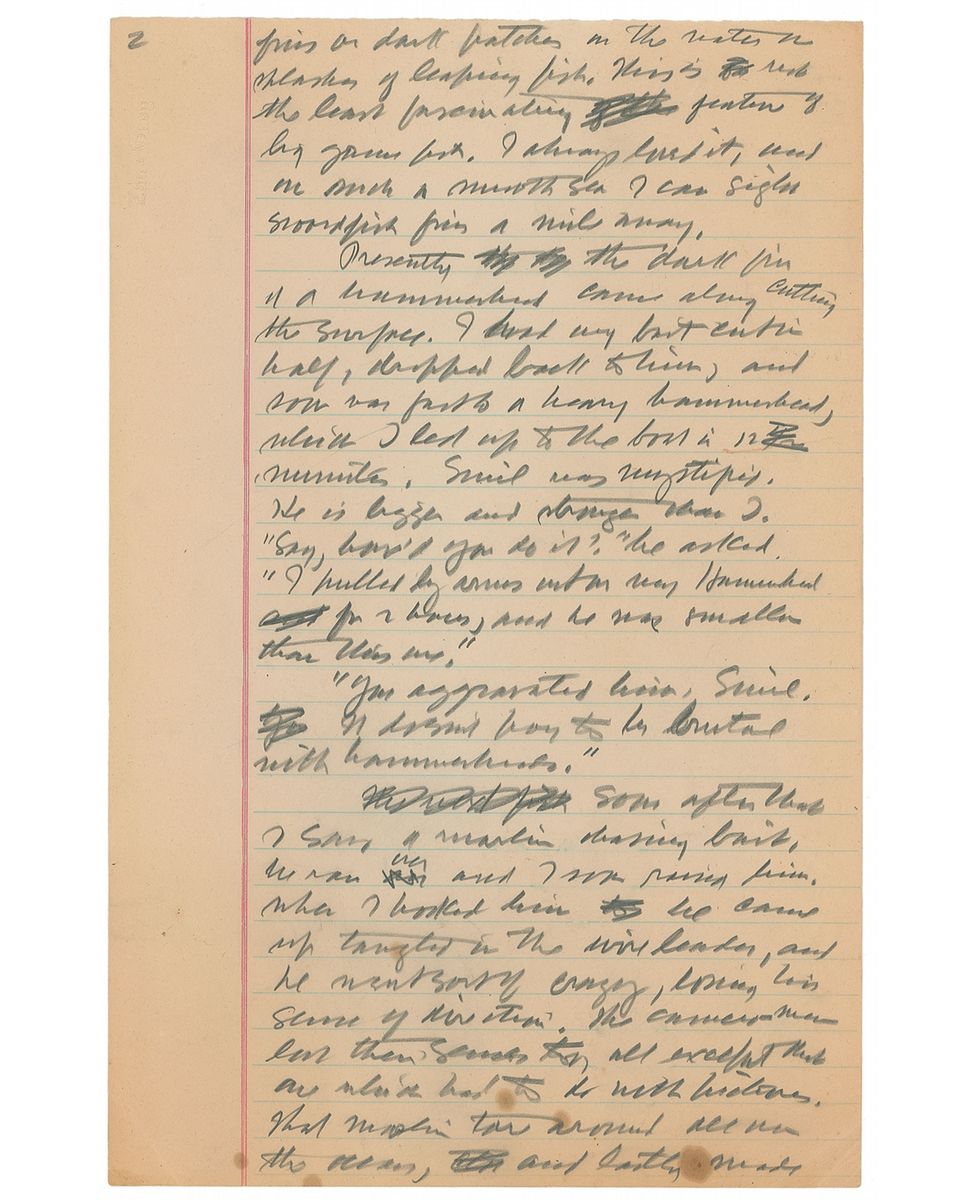 2
fins or dark patches on the water or
splashes of leaping fish. This is not
the least fascinating feature of
big game fish. I always loved it, and
on such a smooth sea I can sight
swordfish fins a mile away.
Presently the dark fin
of a hammerhead came along cutting
the surface. I had my bait cut in
half, dropped back to him, and
soon was fast to a heavy hammerhead,
which I led up to the boat in 12
minutes. Emil was mystified.
He is bigger and stronger than I.
"Say, how'd you do it?" he asked.
"I pulled my arms out on my Hammerhead
for 2 hours, and he was smaller
than this one."
"You aggravated him, Emil.
It doesn't pay to be brutal
with hammerheads."
Soon after that
I saw a marlin chasing bait.
We ran over and I soon raised him.
When I hooked him he came
up tangled in the wire leader, and
he went sort of crazy, losing his
sense of direction. The camera-men
lost their senses, all except that
one which had to do with pictures.
That marlin tore around all over
the ocean, and lastly made